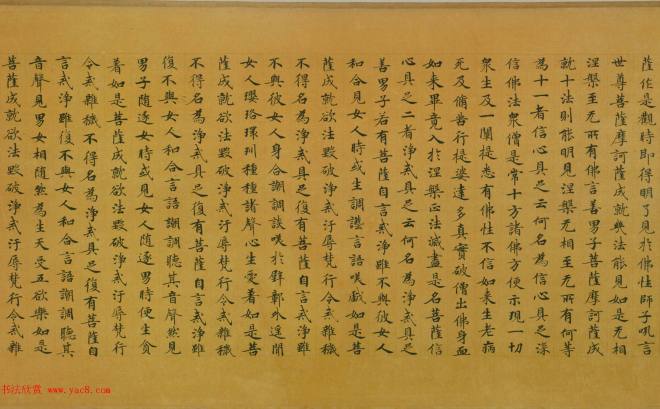 薩作是觀時即得明了見於佛性師子吼言
世尊菩薩摩訶薩成就幾法能見如是无相
涅槃至无所有佛言善男子菩薩摩訶薩成
就十法則能明見涅槃无相至无所有何等
為十一者信心具足云何名為信心具足深
信佛法衆僧是常十方諸佛方便示現一切
衆生及一闡提悉有佛性不信如來生老病
死及脩苦行提婆達多真實破僧出佛身血
如來畢竟入於涅槃正法滅盡是名菩薩信
心具足二者淨戒具足云何名為淨戒具足
善男子若有菩薩自言戒淨雖不與彼女人
和合見女人時或生調謔言語嘆戲如是菩
薩成就欲法毀破淨戒汙辱梵行令戒雜穢
不得名為淨戒具足復有菩薩自言戒淨雖
不與彼女人身合嘲調談嘆於壁鄣外遙聞
女人瓔珞環玔種種諸聲心生愛着如是菩
薩成就欲法毀破淨戒汙辱梵行令戒雜穢
不得名為淨戒具足復有菩薩自言淨戒雖
復不與女人和合言語嘲調聽其音聲然見
男子隨逐女時或見女人隨逐男時便生貪
着如是菩薩成就欲法毀破淨戒汙辱梵行
令戒雜穢不得名為淨戒具足復有菩薩自
言戒淨雖復不與女人和合言語嘲調聽其
音聲見男女相隨然為生天受五欲樂如是
菩薩成就欲法毀破淨戒汙辱梵行令戒雜
书法欣赏 www.yac8.com